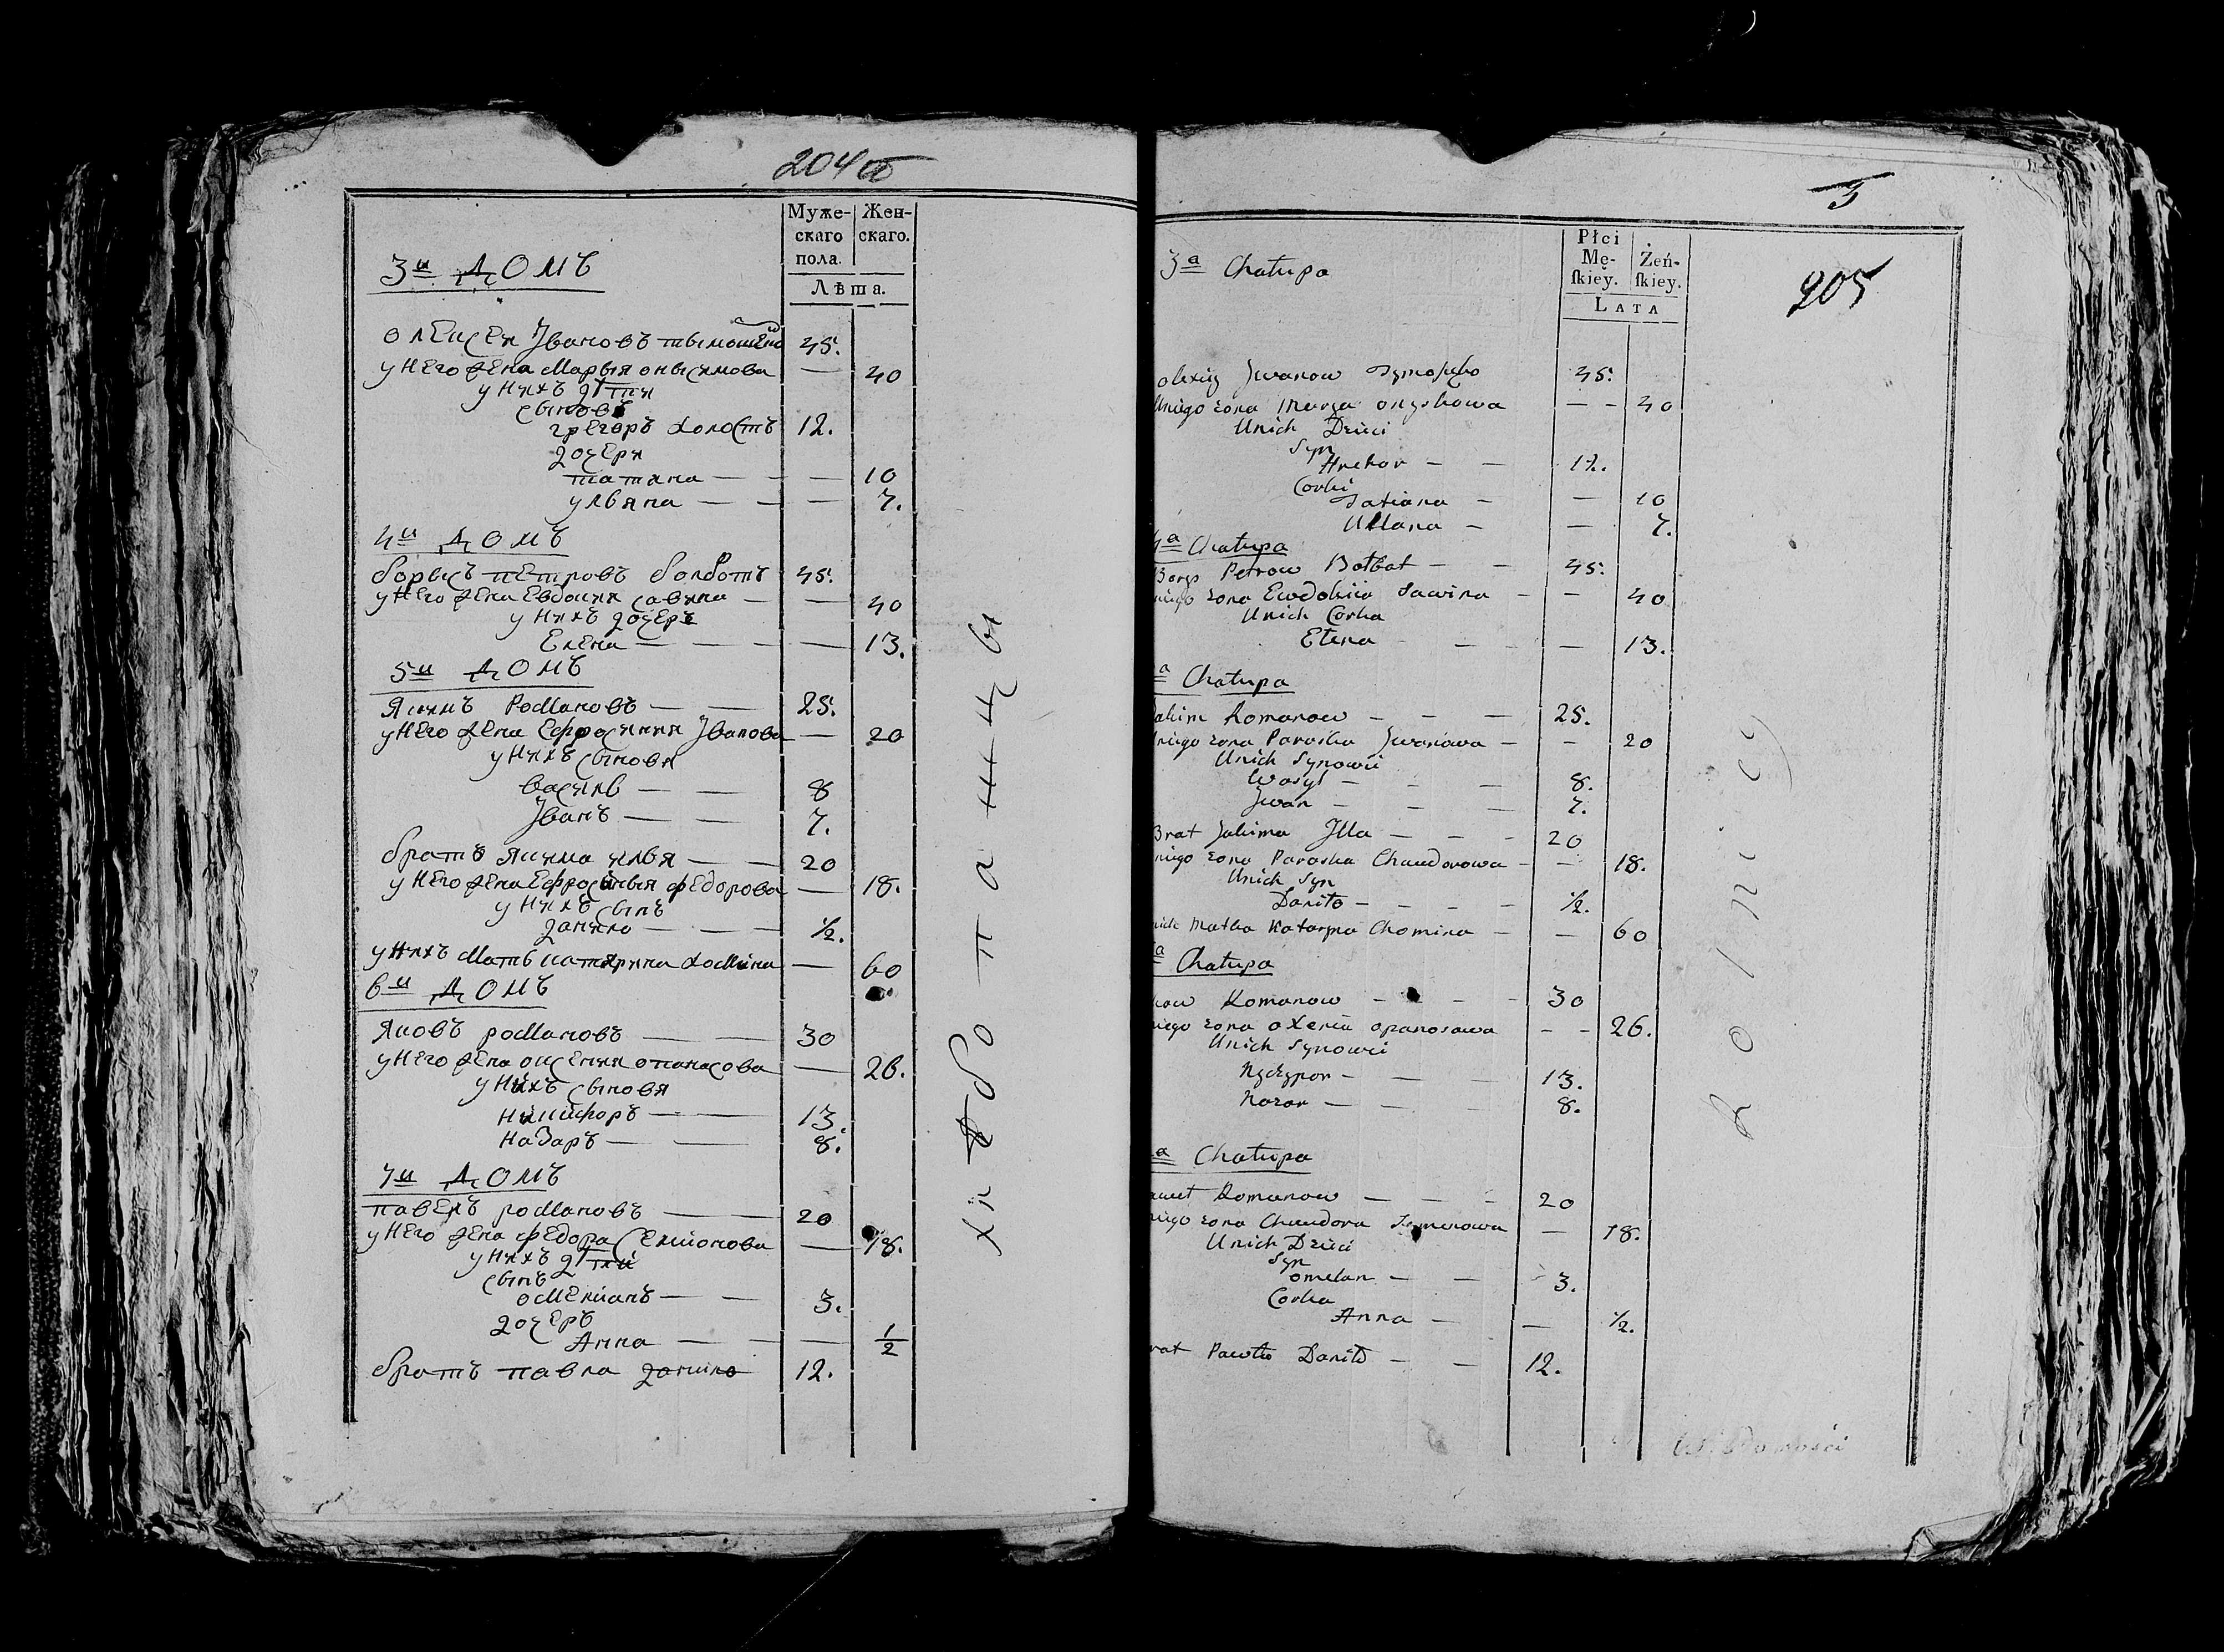 204 об
Муже-
скаго
пола.
Жен-
скаго.
Лѣта.
3й ДОМЪ
Олексей Јвановъ 45.
у него жена Марья онысимова — 40
у нихъ дѣти
сыновъ
грегоръ холостъ 12.
дочери
татяна — — — 10
ульяна — — — 7.
4й ДОМЪ
борысъ петровъ болботъ 45.
у него жена Евдокия савина — — 40
у нихъ дочерь
Елена — — — — 13.
5й ДОМЪ
Якимъ Романовъ — — 25.
у него жена Ефросиния Јванова — 20
у нихъ сыновя
василь — — 8
Јванъ — — 7.
братъ якима илья — — 20
у него жена Ефросинья федорова — 18.
у нихъ сынъ
данило — — — ½.
у нихъ мать катярина хомина — 60
6й ДОМЪ
Яковъ романовъ — — 30
у него жена оксения опанасова — 26.
у нихъ сыновя
никифоръ — — 13.
назаръ — — 8.
7й ДОМЪ
павелъ романовъ — 20
у него жена федора семионова — 18.
у нихъ дѣтий
сынъ
омелианъ — — 3.
дочерь
Анна — — — 1/2
братъ павла данило 12.
хлѣбопашцы
3
205
Płci
Mę-
ſkiey.
Żeń-
ſkiey.
LATA
3a Chałupa
olexiy Jwanow 45.
Uniego zona Marya onyskowa — — 40
Unich Dzieci
Syn
Hrehor — — 12.
Corki
Tatiana — — 10
Ullana — — 7.
4a Chałupa
Borys Petrow Bołbot — — 45.
niego zona Ewdokiia Sawina — — 40
Unich Corka
Elena — — — 13.
a Chałupa
akim Romanow — — — 25.
niego zona Paraska Jwanowa — — 20
Unich Synowie
Wasyl — — — 8.
Jwan — — — 7.
Brat Jakima Jlla — — — 20
niego zona Paraska Chwedorowa — — 18.
Unich Syn
Daniło — — — — ½.
nich Matka Katarzyna Chomina — — 60
a Chałupa
kow Romanow — — — 30
niego zona oxenia opanasowa — — 26.
Unich Synowie
Nyczypor — — — 13.
Nazar — — — 8.
a Chałupa
aweł Romanow — — — 20
niego zona Chwedora Semenowa — 18.
Unich Dzieci
Syn
omelan — — 3.
Corka
Anna — — ½.
rat Pawła Daniło — — 12.
Rolnicy